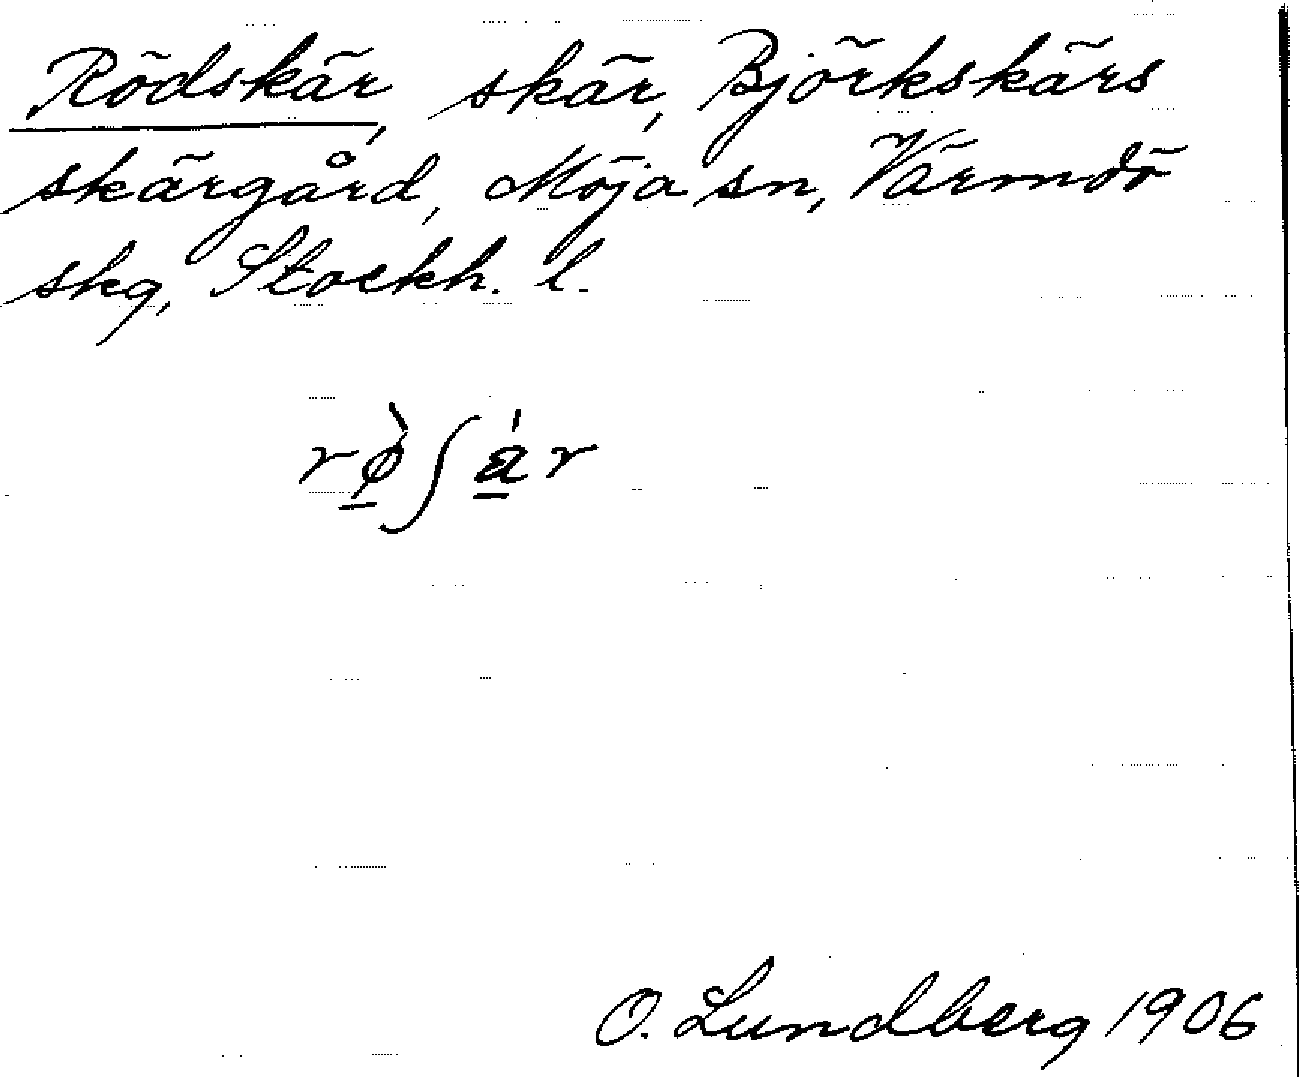 Rödskär, skär, Björkskärs
skärgård, Möja sn, Värmdö
skg, Stockh. l.
rø̱̀ʃa̱̍r
O. Lundberg 1906